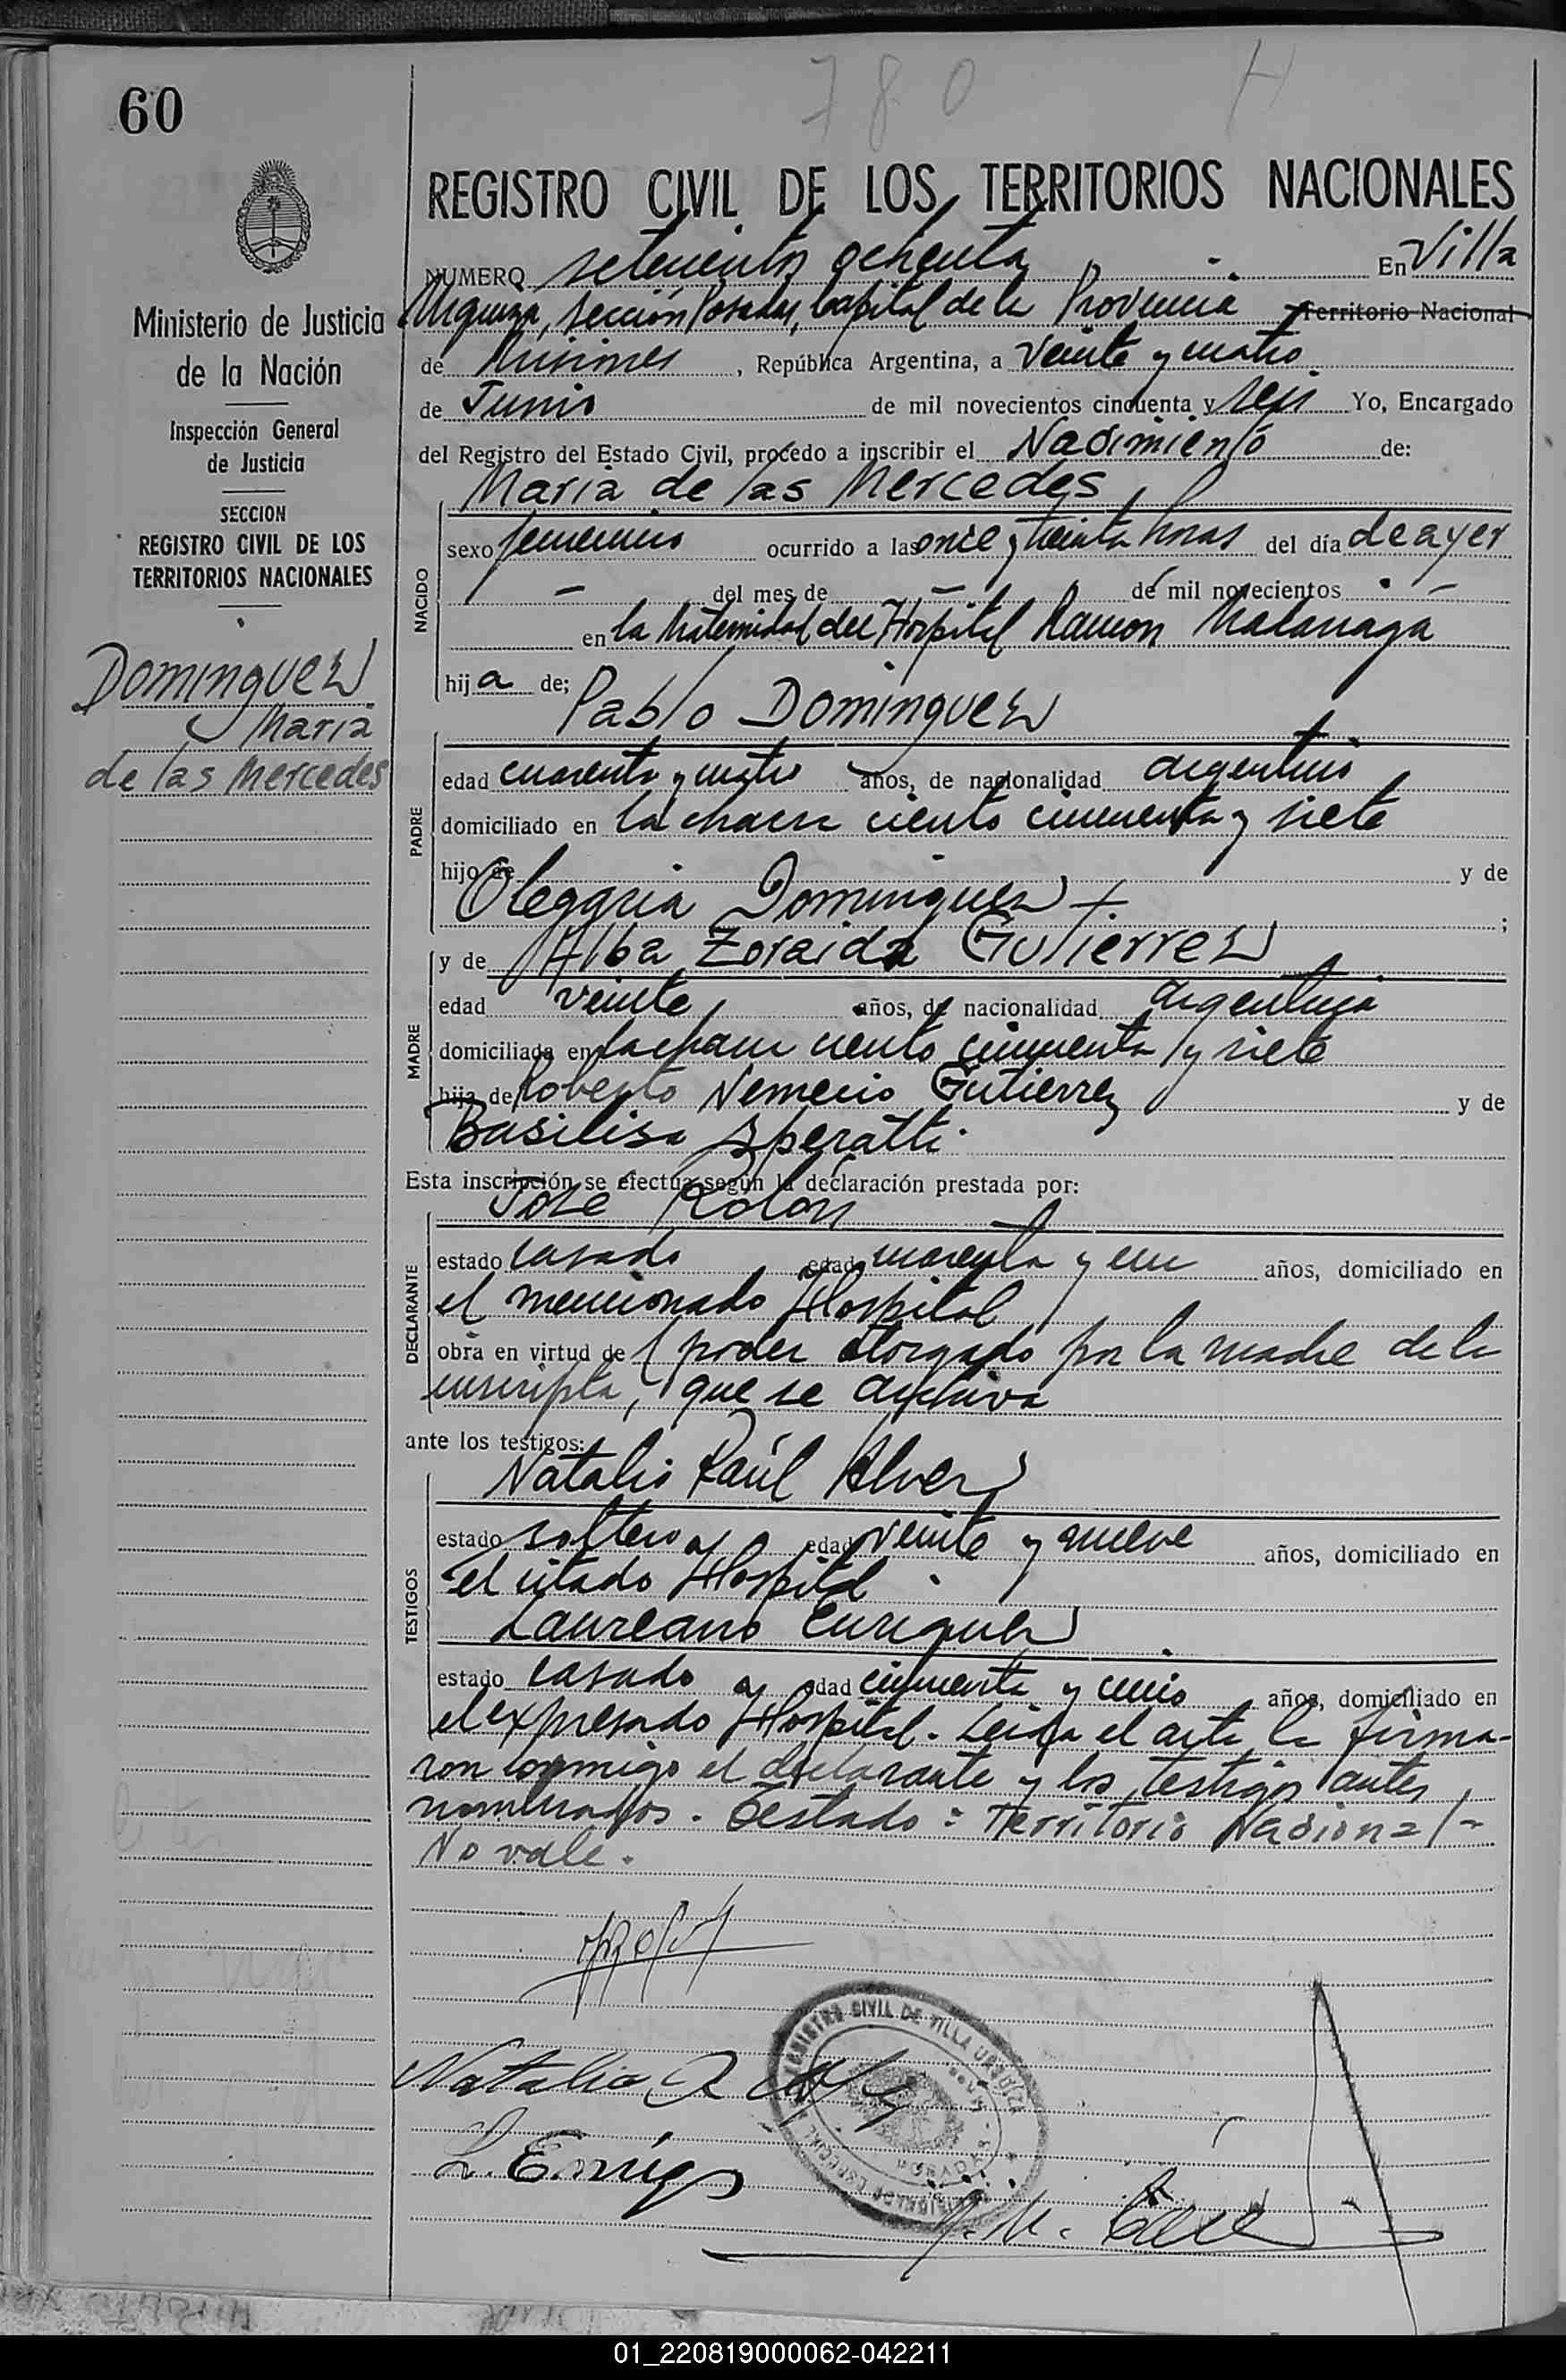 780
60
REGISTRO CIVIL DE LOS TERRITORIOS NACIONALES
NUMERO setecientos ochenta En Villa
Urquiza, sección Posadas, Capital de la Provincia Territorio Nacional
de Misiones, República Argentina, a veinte y cuatro
de Junio de mil novecientos cincuenta y seis Yo, Encargado
del Registro del Estado Civil, procedo a inscribir el Nacimiento de:
Maria de las Mercedes
NACIDO
sexo femenino ocurrido a las once y treinta horas del día de ayer
del mes de de mil novecientos
en la Maternidad del Hospital Ramon Madariaga
hija de;
Pablo Dominguez
PADRE
edad cuarenta y cuatro años, de nacionalidad argentino
domiciliado en la chacra ciento cincuenta y siete
hijo de y de
Olegaria Dominguez ;
y de Alba Zoraida Gutierrez
MADRE
edad veinte años, de nacionalidad argentina
domiciliada en la chacra ciento cincuenta y siete
hija de Roberto Nemecio Gutierrez y de
Basilisa Speratti
Esta inscripción se efectúa según la declaración prestada por:
José Rolon
DECLARANTE
estado casado edad cuarenta y un años, domiciliado en
el mencionado Hospital
obra en virtud del poder otorgado por la madre de la
inscripta, que se archiva
ante los testigos:
Natalio Raúl Alvez
TESTIGOS
estado soltero edad veinte y nueve años, domiciliado en
el citado Hospital
Laureano Enriquez
estado casado edad cincuenta y cinco años, domiciliado en
el expresado Hospital. Leida el acta la firma-
ron conmigo el declarante y los testigos antes
nombrados. Testado: Territorio Nacional-
No vale.
Natalio R
L. Enriq
REGISTRO CIVIL DE VILLA URQUIZA
Ministerio de Justicia
de la Nación
Inspección General
de Justicia
SECCION
REGISTRO CIVIL DE LOS
TERRITORIOS NACIONALES
Dominguez
Maria
de las Mercedes
01_220819000062-042211